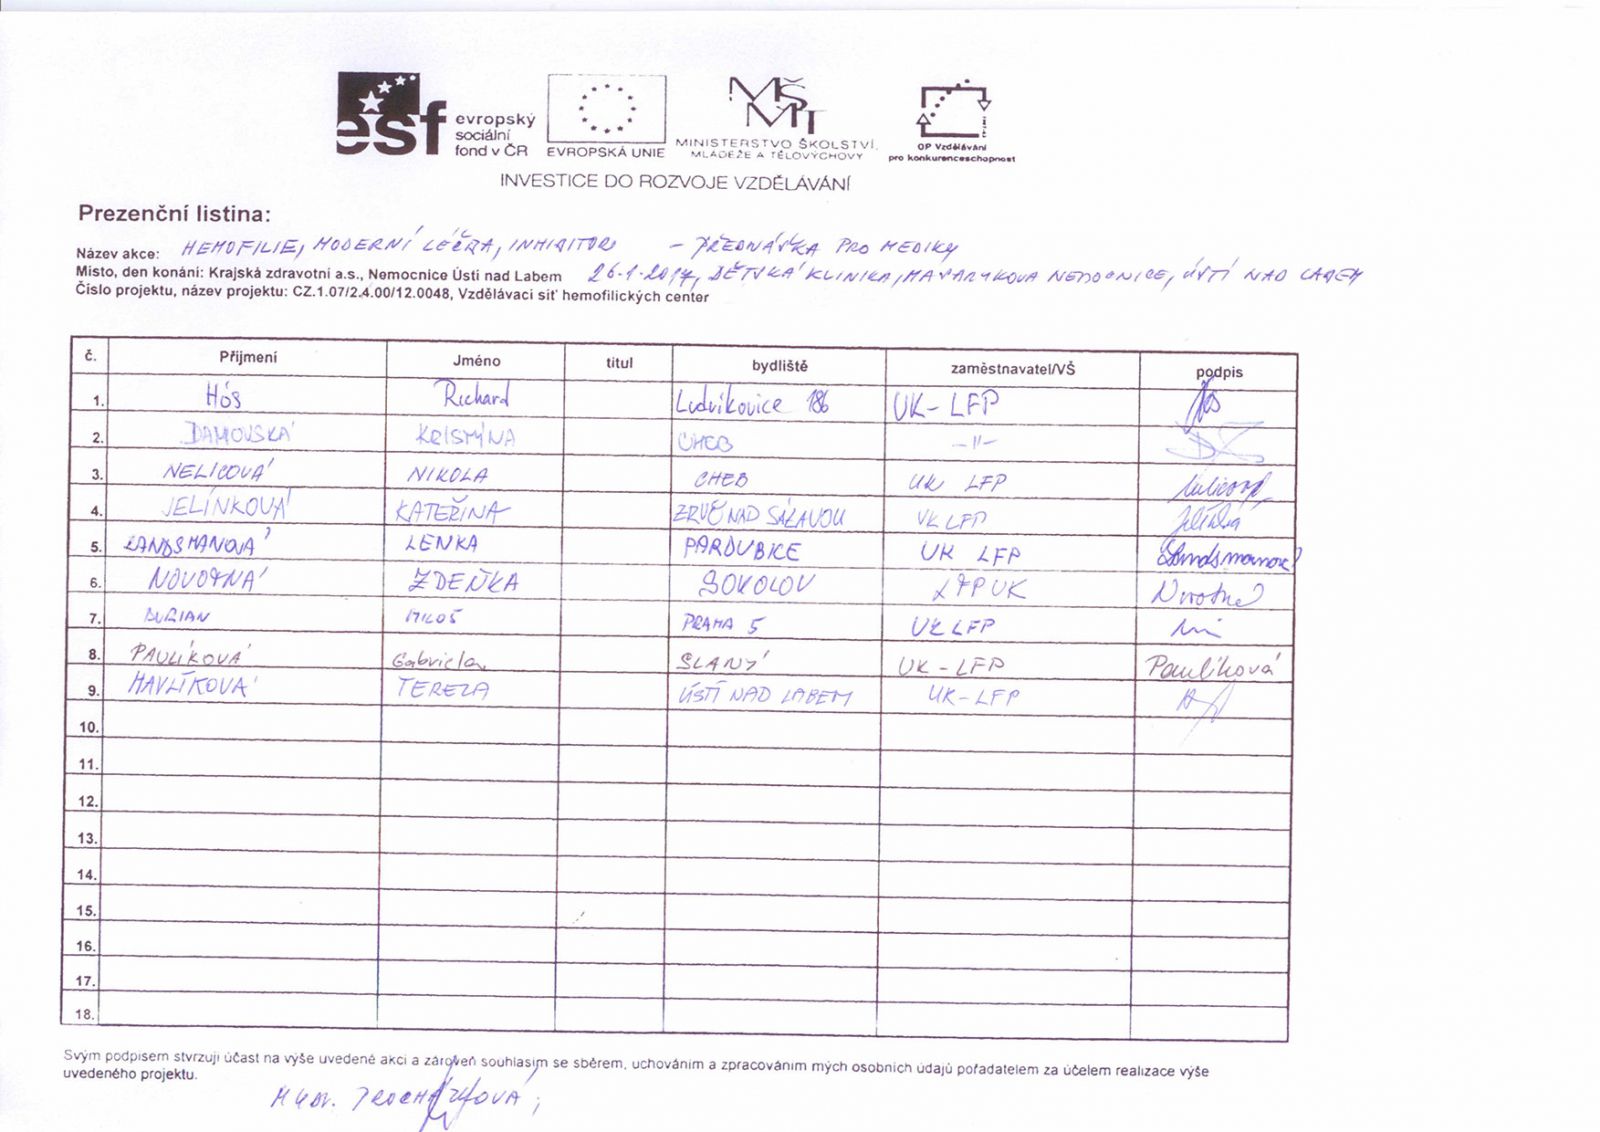 esf evropský sociální fond v ČR
EVROPSKÁ UNIE
MŠMT
MINISTERSTVO ŠKOLSTVÍ,
MLÁDEŽE A TĚLOVÝCHOVY
OP Vzdělávání
pro konkurenceschopnost
INVESTICE DO ROZVOJE VZDĚLÁVÁNÍ
Prezenční listina:
Název akce: HEMOFILIE, MODERNÍ LÉČBA, INHIBITOR - PŘEDNÁŠKA PRO MEDIKY
Místo, den konání: Krajská zdravotní a.s., Nemocnice Ústí nad Labem 26.1.2017, DĚTSKÁ KLINIKA, MASARYKOVA NEMOCNICE, ÚSTÍ NAD LABEM
Číslo projektu, název projektu: CZ.1.07/2.4.00/12.0048, Vzdělávací síť hemofilických center
č. Příjmení Jméno titul bydliště zaměstnavatel/VŠ podpis
1. Hós Richard Ludvíkovice 186 UK-LFP
2. KRISTÝNA CHEB -II-
3. NELICOVÁ NIKOLA CHEB UK LFP
4. JELÍNKOVÁ KATEŘINA ZRUČ NAD SÁZAVOU UK LFP
5. LANDSMANOVÁ LENKA PARDUBICE UK LFP Landsmanová
6. NOVOTNÁ ZDEŇKA SOKOLOV LFP UK Novotná
7. DURIAN MILOŠ PRAHA 5 UK LFP
8. PAULÍKOVÁ Gabriela SLANÝ UK-LFP Paulíková
9. HAVLÍKOVÁ TEREZA ÚSTÍ NAD LABEM UK-LFP
10.
11.
12.
13.
14.
15.
16.
17.
18.
Svým podpisem stvrzuji účast na výše uvedené akci a zároveň souhlasím se sběrem, uchováním a zpracováním mých osobních údajů pořadatelem za účelem realizace výše
uvedeného projektu.
MUDr. PROCHÁZKOVÁ